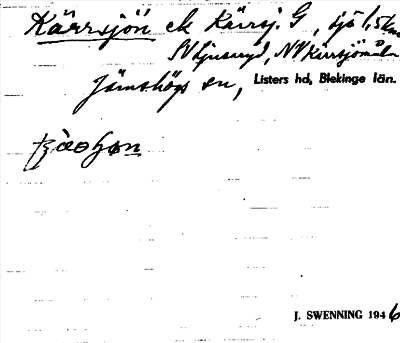 Kärrsjön ek Kärrsj. G, sjö 1,5 km
SV Ljusaryd, NV Kärrsjömåla
Jämshögs sn, Listers hd, Blekinge län.
J. SWENNING 1946